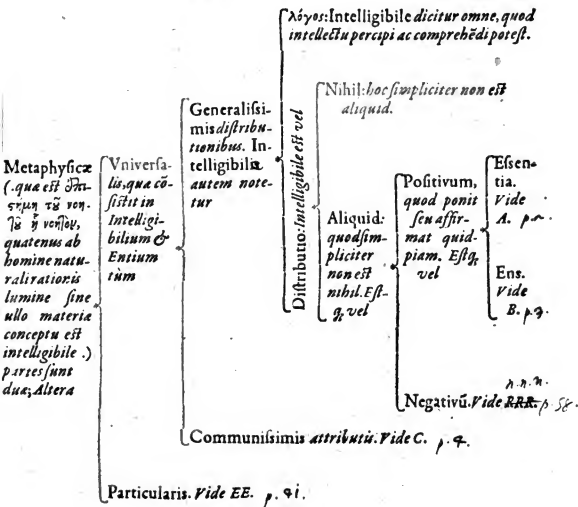 Metaphysicæ
(quæ est ἐπι-
ςήμη τȣ͂ νοη-
τȣ͂ ᾗ νοητὸν,
quatenus ab
homine natu-
rali rationis
lumine sine
ullo materiæ
conceptu est
intelligibile.)
partes sunt
duæ; Altera
Vniversa-
lis, quæ cõ-
sistit in
Intelligi-
bilium &
Entium
tùm
Generalissi-
mis distribu-
tionibus. In-
telligibilia
autem note-
tur
λόγος: Intelligibile dicitur omne, quod
intellectu percipi ac comprehẽdi potest.
Distributio: Intelligibile est vel
Nihil: hoc simpliciter non est
aliquid.
Aliquid:
quod sim-
pliciter
non est
nihil. Est-
q; vel
Positivum,
quod ponit
seu affir-
mat quid-
piam. Estq;
vel
Essen-
tia.
Vide
A. p.
Ens.
Vide
B. p. 3.
n.n.n.
Negativũ. Vide RRR. p. 58.
Communissimis attributis. Vide C. p. 4.
Particularis. Vide EE. p. 41.